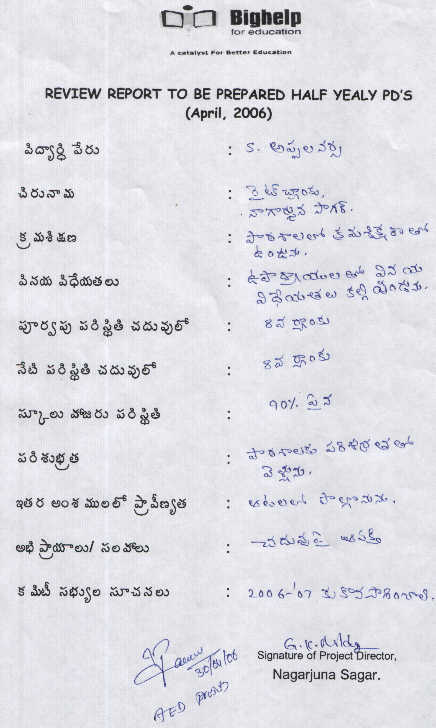 Bighelp
for education
A catalyst For Better Education
REVIEW REPORT TO BE PREPARED HALF YEALY PD'S
(April, 2006)
విద్యార్ధి పేరు : S. అప్పలనర్స
చిరునామ : రైట్ బ్యాంకు,
నాగార్జున సాగర్.
క్రమశిక్షణ : పాఠశాలలో క్రమశిక్షణతో
ఉండును.
వినయ విధేయతలు : ఉపాధ్యాయులతో వినయ
విధేయతలు కల్గియుండును.
పూర్వపు పరిస్థితి చదువులో : 8వ ర్యాంకు
నేటి పరిస్థితి చదువులో : 8వ ర్యాంకు
స్కూలు హాజరు పరిస్థితి : 90% పైన
పరిశుభ్రత : పాఠశాలకు పరిశుభ్రతతో
వెళ్లును.
ఇతర అంశములలో ప్రావీణ్యత : ఆటలలో పాల్గొనును.
అభిప్రాయాలు/ సలహాలు : చదువుపై ఆసక్తి
కమిటీ సభ్యుల సూచనలు : 2006-'07 కు కొనసాగించాలి.
30/04/06
G.K. Reddy
Signature of Project Director,
Nagarjuna Sagar.